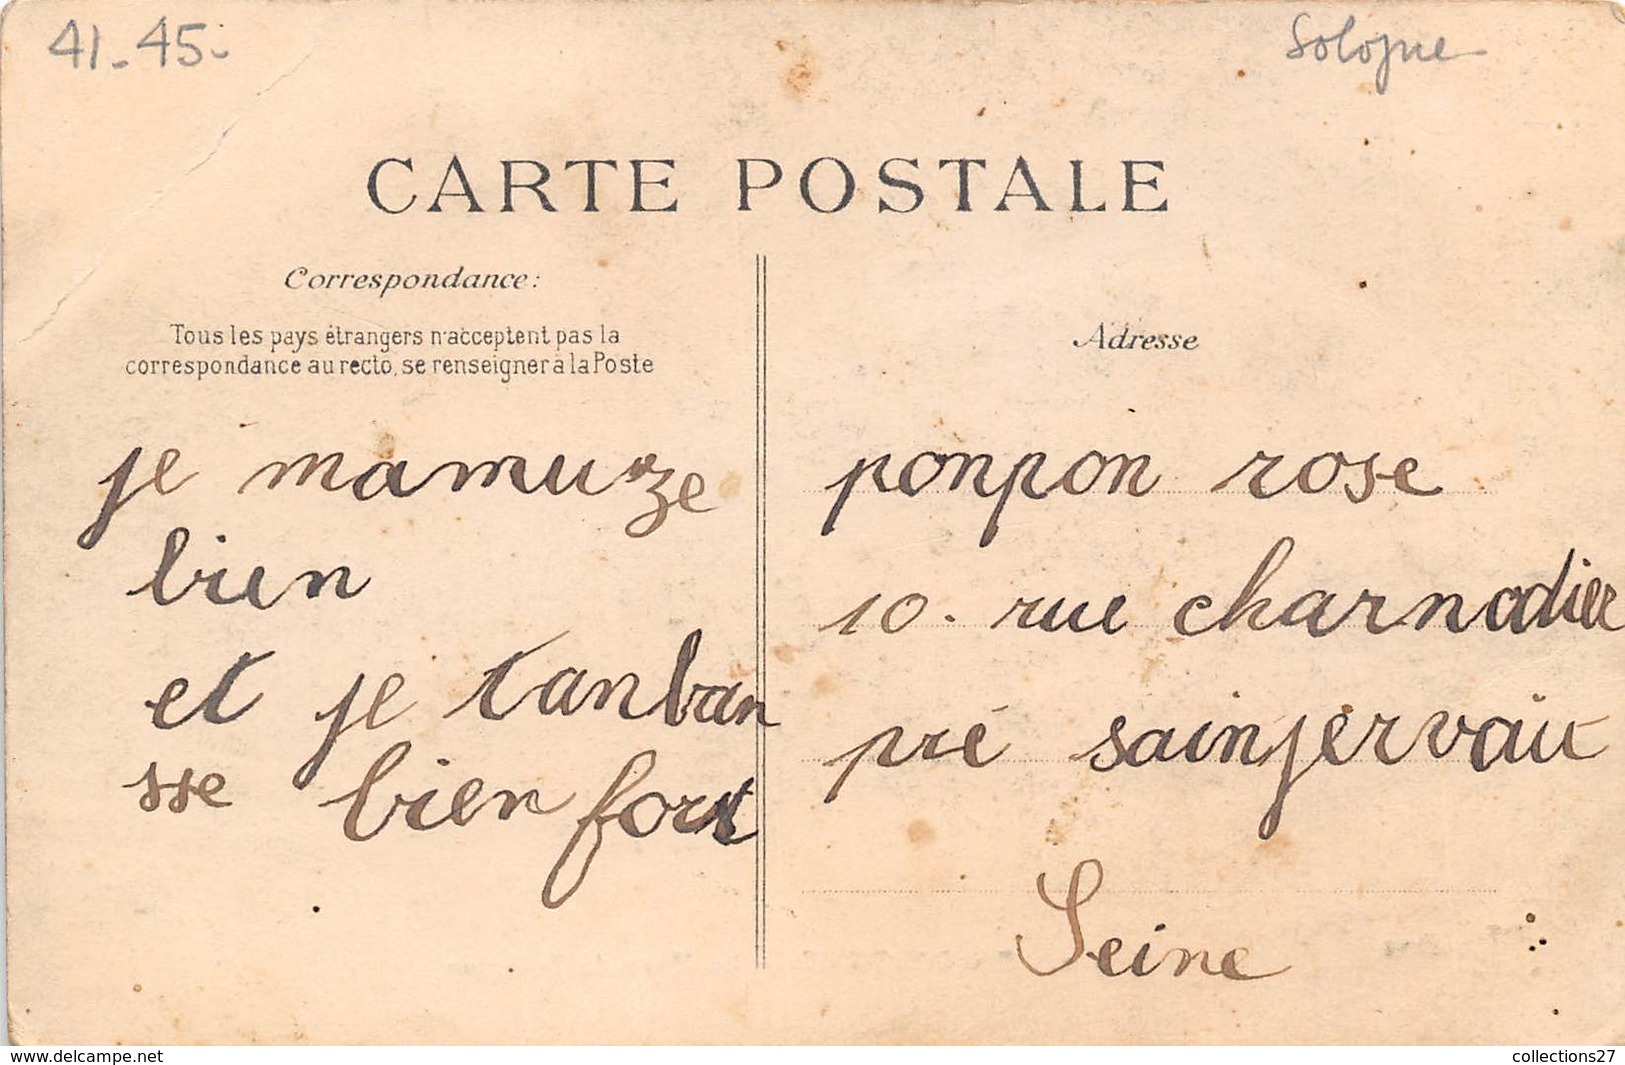 41-45-
Sologne
CARTE POSTALE
Correspondance:
Tous les pays étrangers n'acceptent pas la
correspondance au recto, se renseigner à la Poste
je mamuze
bien
et je tanbran
sse bien fort
Adresse
ponpon rose
10. rue charnodier
pré sainjervait
Seine
www.delcampe.net
collections27